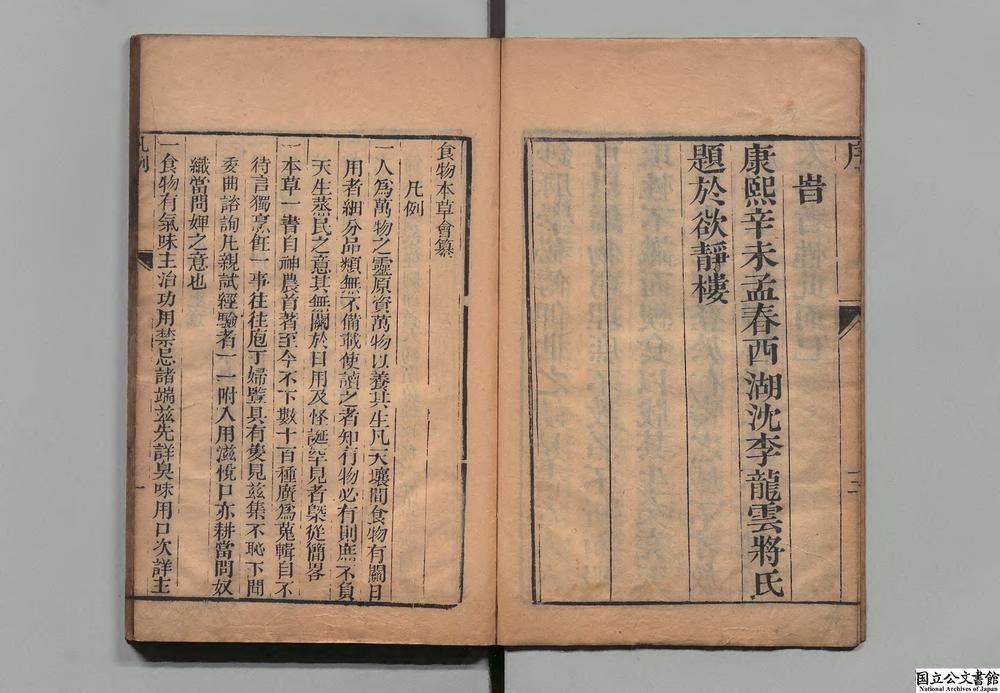 序
旹
康熙辛未孟春西湖沈李龍雲將氏
題於欲靜樓
三
食物本草會纂
凡例
一人為萬物之靈原資萬物以養其生凡天壤間食物有關日
用者細分品類無不備載使讀之者知有物必有則庶不負
天生蒸民之意其無關於日用及怪誕罕見者槩從簡畧
一本草一書自神農首著至今不下數十百種廣為蒐輯自不
待言獨烹飪一事往往庖丁婦豎具有隻見兹集不恥下問
委曲諮詢凡親試經驗者一一附入用滋悅口亦耕當問奴
織當問婢之意也
一食物有氣味主治功用禁忌諸端兹先詳臭味用口次詳主
凡例
一
国立公文書館
National Archives of Japan